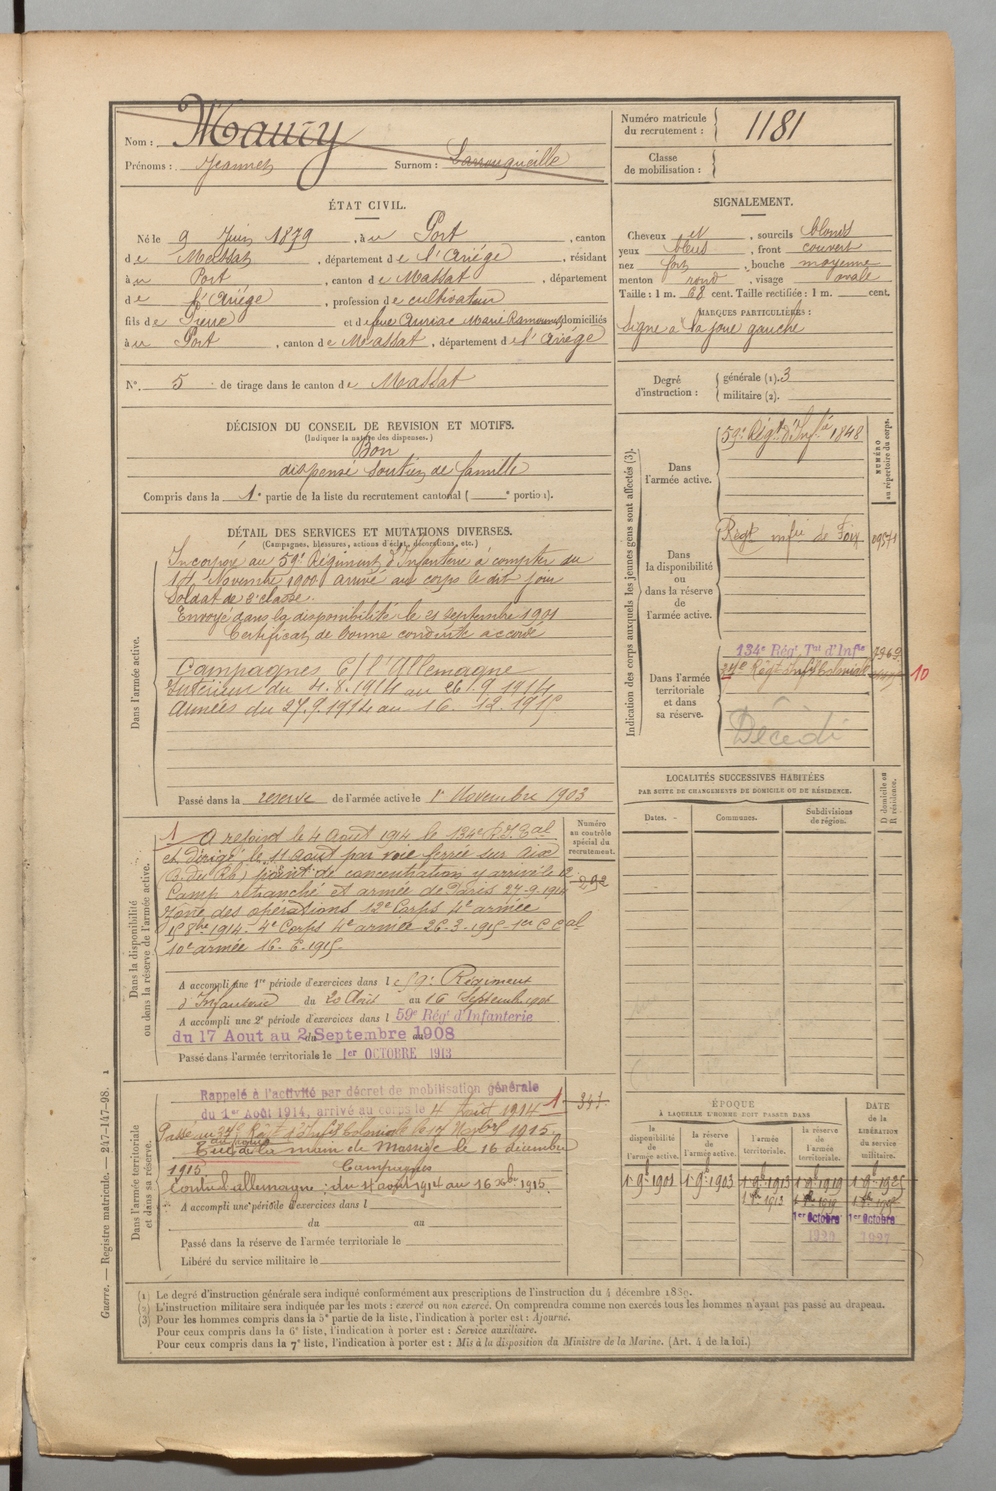 Nom : Maury
Prénoms : Jeannet Surnom : Larrouqueille
Numéro matricule du recrutement : 1181
Classe de mobilisation :
ÉTAT CIVIL.
Né le 9 Juin 1879, à u Port, canton
de Massat, département de l'Ariège, résidant
à u Port, canton de Massat, département
de l'Ariège, profession de cultivateur
fils de Pierre et de feue Auriac Marie Ramounet domiciliés
à u Port, canton de Massat, département de l'Ariège
N° 5 de tirage dans le canton de Massat
SIGNALEMENT.
Cheveux et, sourcils blonds
yeux bleus, front couvert
nez fort, bouche moyenne
menton rond, visage ovale
Taille : 1 m. 68 cent. Taille rectifiée : 1 m. cent.
MARQUES PARTICULIÈRES :
Signe à la joue gauche
Degré d'instruction : générale (1). 3
militaire (2).
DÉCISION DU CONSEIL DE REVISION ET MOTIFS.
(Indiquer la nature des dispenses.)
Bon
dispensé soutien de famille
Compris dans la 1e partie de la liste du recrutement cantonal ( e portion).
DÉTAIL DES SERVICES ET MUTATIONS DIVERSES.
(Campagnes, blessures, actions d'éclat, décorations, etc.)
Dans l'armée active.
Incorporé au 59e Régiment d'Infanterie à compter du
14 Novembre 1900 arrivé au corps le dit jour
Soldat de 2e classe.
Envoyé dans la disponibilité le 21 septembre 1901
Certificat de bonne conduite accordé
Campagnes C/ l'Allemagne
Intérieur du 4.8.1914 au 26.9.1914
Armées du 27.9.1914 au 16.12.1915
Passé dans la réserve de l'armée active le 1er Novembre 1903
Dans la disponibilité ou dans la réserve de l'armée active.
Numéro au contrôle spécial du recrutement.
292
1 A rejoint le 4 Août 1914 le 134e R.I.Tal
et dirigé le 11 Août par voie ferrée sur Aix
(B. du Rh.) point de concentration y arrivé le 12
Camp retranché et armée de Paris 27.9.1914
Zone des opérations 12e Corps 4e armée
15 8bre 1914 - 4e Corps 4e armée 26.3.1915 - 1er C. Cal
10e armée 16.6.1915
A accompli une 1re période d'exercices dans le 59e Régiment
d'Infanterie du 20 Août au 16 Septemb. 1906
A accompli une 2e période d'exercices dans le 59e Régt d'Infanterie
du 17 Aout au 2 Septembre 1908
Passé dans l'armée territoriale le 1er OCTOBRE 1913
Dans l'armée territoriale et dans sa réserve.
Rappelé à l'activité par décret de mobilisation générale
du 1er Août 1914, arrivé au corps le 4 Août 1914 1
347
Passé au Régt d'Inf Coloniale le 14 Novbre 1915.
Tué à la main de Massiges le 16 décembre
1915. Campagnes
Contre l'allemagne : du 4 août 1914 au 16 xbre 1915.
A accompli une période d'exercices dans l
du au
Passé dans la réserve de l'armée territoriale le
Libéré du service militaire le
Indication des corps auxquels les jeunes gens sont affectés (3).
NUMÉRO au répertoire du corps.
Dans l'armée active. 59e Régt d'Infie 1848
Dans la disponibilité ou dans la réserve de l'armée active. Régt infie de Foix
Dans l'armée territoriale et dans sa réserve. 134e Régt Tal d'Infie
Régt Inf Coloniale 10
Décédé
LOCALITÉS SUCCESSIVES HABITÉES
PAR SUITE DE CHANGEMENTS DE DOMICILE OU DE RÉSIDENCE.
Dates. Communes. Subdivisions de région.
D domicile ou R résidence.
ÉPOQUE
À LAQUELLE L'HOMME DOIT PASSER DANS
DATE de la LIBÉRATION du service militaire.
la disponibilité de l'armée active. la réserve de l'armée active. l'armée territoriale. la réserve de l'armée territoriale.
1 9b 1901 1 9b 1903 1 9b 1913 1 9b 1919 1 9b 1925
1er Octobre 1er Octobre
(1) Le degré d'instruction générale sera indiqué conformément aux prescriptions de l'instruction du 4 décembre 1889.
(2) L'instruction militaire sera indiquée par les mots : exercé ou non exercé. On comprendra comme non exercés tous les hommes n'ayant pas passé au drapeau.
(3) Pour les hommes compris dans la 5e partie de la liste, l'indication à porter est : Ajourné.
Pour ceux compris dans la 6e liste, l'indication à porter est : Service auxiliaire.
Pour ceux compris dans la 7e liste, l'indication à porter est : Mis à la disposition du Ministre de la Marine. (Art. 4 de la loi.)
Guerre. — Registre matricule. — 247-147-98. 1